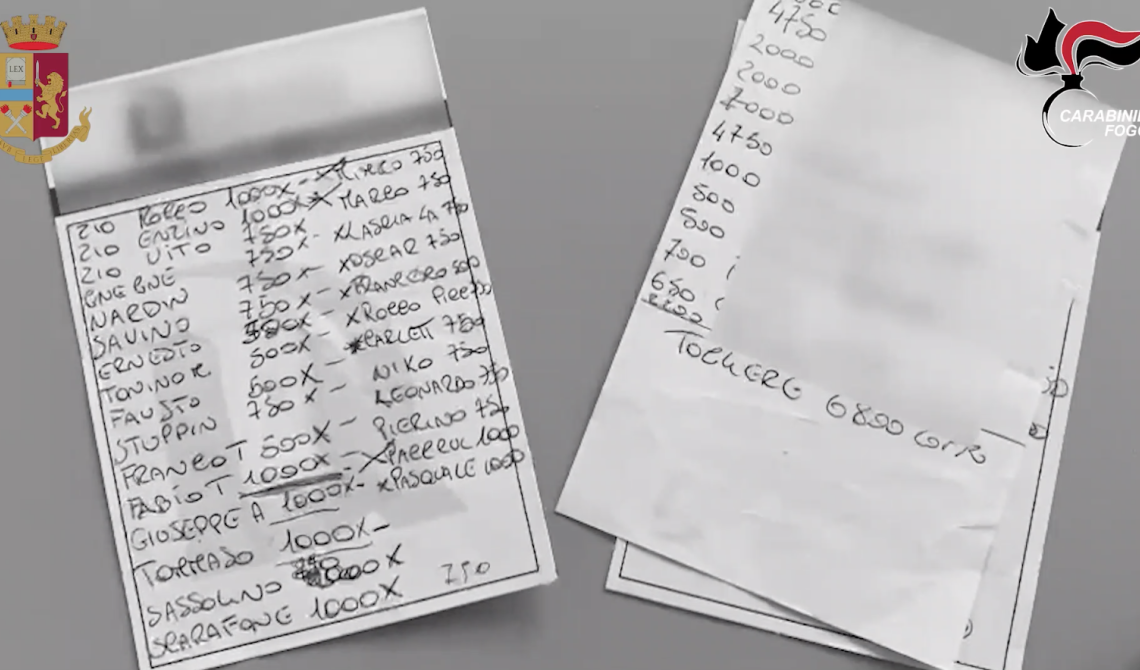 LEX
ZIO ROCCO 1000X - X MIRKO 750
ZIO ENZINO 1000X X MARCO 750
ZIO VITO 750X - X LASRIA LA 750
GNEGNÉ 750X - X OSCAR 750
NARDIN 750X - X FRANCESCO 500
SAVINO 750X - X ROCCO
ERNESTO 500X - X CARLETT 750
TONINO R 500X - NIKO 750
FAUSTO 500X - LEONARDO 750
STUPPIN 750X - PIERINO 750
FRANCO T 500X - X PAPPUL 1000
FABIO T 1000X - X PASQUALE 1000
GIUSEPPE A 1000X -
TORMADO 1000X -
SASSOLINO 1000X
SCARAFONE 1000X 750
4750
2000
2000
2000
4750
1000
500
500
700
650
TOGLIERE 6800
CARABINIE
FOGG